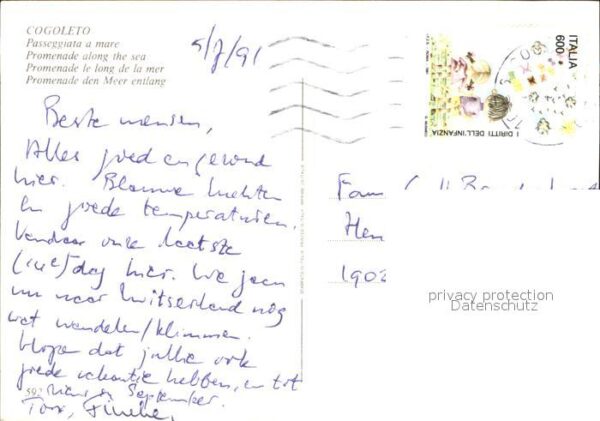 COGOLETO
Passeggiata a mare
Promenade along the sea
Promenade le long de la mer
Promenade den Meer entlang
5/7/91
ITALIA
600
I DIRITTI DELL'INFANZIA
Beste mensen,
Alles goed en gezond
hier. Blauwe luchten
en goede temperaturen.
Vandaar onze laatste
dag hier. We gaan
nu naar Zwitserland nog
wat wandelen/klimmen.
Hopen dat jullie ook
goede vakantie hebben, en tot
September.
592
Fam
1902
privacy protection
Datenschutz